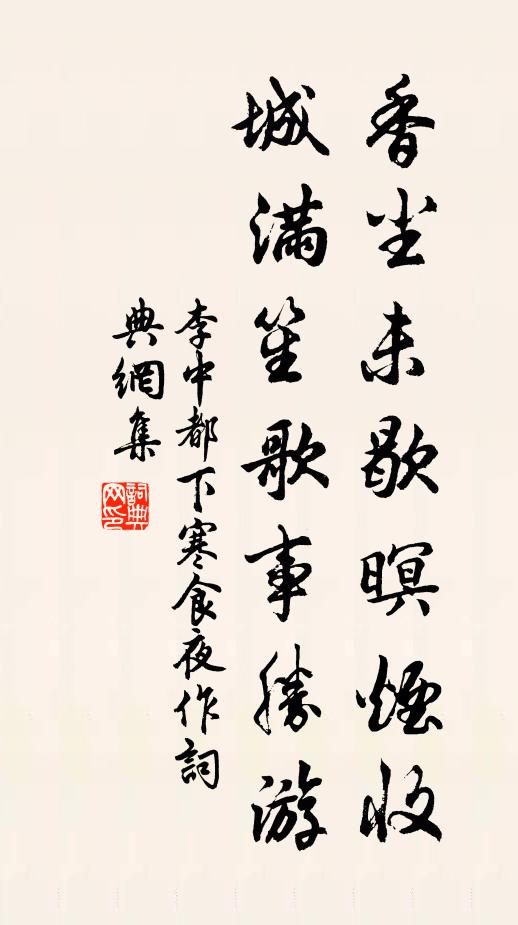 香尘未歇暝煙收
城满笙歌事勝游
李中都下寒食夜作詞
典網集
詞典
网印